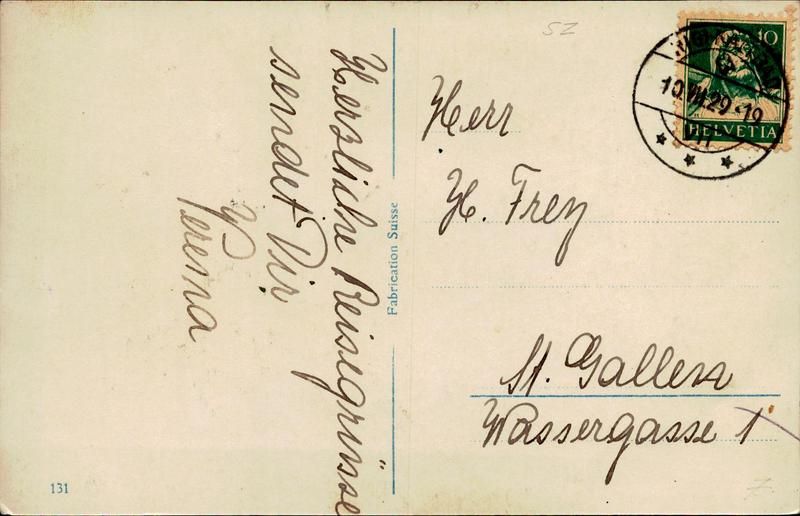 Herzliche Reisegrüsse
sendet Dir
Verena
Fabrication Suisse
131
SZ
10
HELVETIA
Herr
H. Frey
St. Gallen
Wassergasse 1
7.